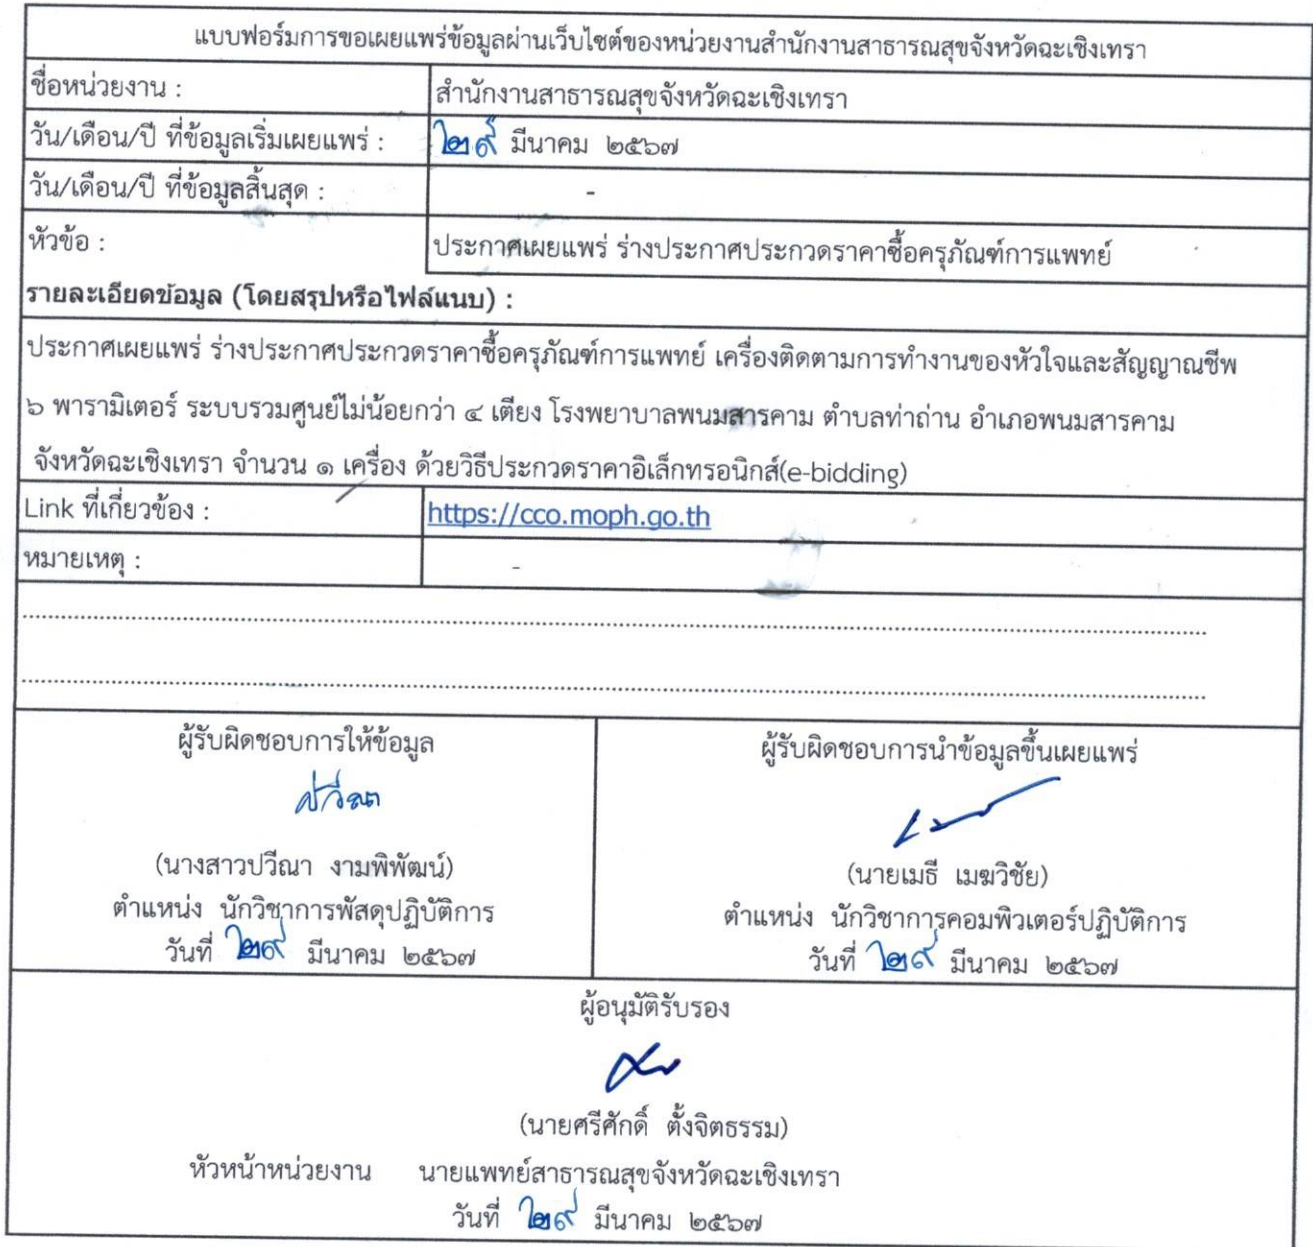 แบบฟอร์มการขอเผยแพร่ข้อมูลผ่านเว็บไซต์ของหน่วยงานสำนักงานสาธารณสุขจังหวัดฉะเชิงเทรา
ชื่อหน่วยงาน : สำนักงานสาธารณสุขจังหวัดฉะเชิงเทรา
วัน/เดือน/ปี ที่ข้อมูลเริ่มเผยแพร่ : ๒๙ มีนาคม ๒๕๖๗
วัน/เดือน/ปี ที่ข้อมูลสิ้นสุด : -
หัวข้อ : ประกาศเผยแพร่ ร่างประกาศประกวดราคาซื้อครุภัณฑ์การแพทย์
รายละเอียดข้อมูล (โดยสรุปหรือไฟล์แนบ) :
ประกาศเผยแพร่ ร่างประกาศประกวดราคาซื้อครุภัณฑ์การแพทย์ เครื่องติดตามการทำงานของหัวใจและสัญญาณชีพ
๖ พารามิเตอร์ ระบบรวมศูนย์ไม่น้อยกว่า ๔ เตียง โรงพยาบาลพนมสารคาม ตำบลท่าถ่าน อำเภอพนมสารคาม
จังหวัดฉะเชิงเทรา จำนวน ๑ เครื่อง ด้วยวิธีประกวดราคาอิเล็กทรอนิกส์(e-bidding)
Link ที่เกี่ยวข้อง : https://cco.moph.go.th
หมายเหตุ : -
ผู้รับผิดชอบการให้ข้อมูล
ปวีณา
(นางสาวปวีณา งามพิพัฒน์)
ตำแหน่ง นักวิชาการพัสดุปฏิบัติการ
วันที่ ๒๙ มีนาคม ๒๕๖๗
ผู้รับผิดชอบการนำข้อมูลขึ้นเผยแพร่
(นายเมธี เมฆวิชัย)
ตำแหน่ง นักวิชาการคอมพิวเตอร์ปฏิบัติการ
วันที่ ๒๙ มีนาคม ๒๕๖๗
ผู้อนุมัติรับรอง
(นายศรีศักดิ์ ตั้งจิตธรรม)
หัวหน้าหน่วยงาน นายแพทย์สาธารณสุขจังหวัดฉะเชิงเทรา
วันที่ ๒๙ มีนาคม ๒๕๖๗